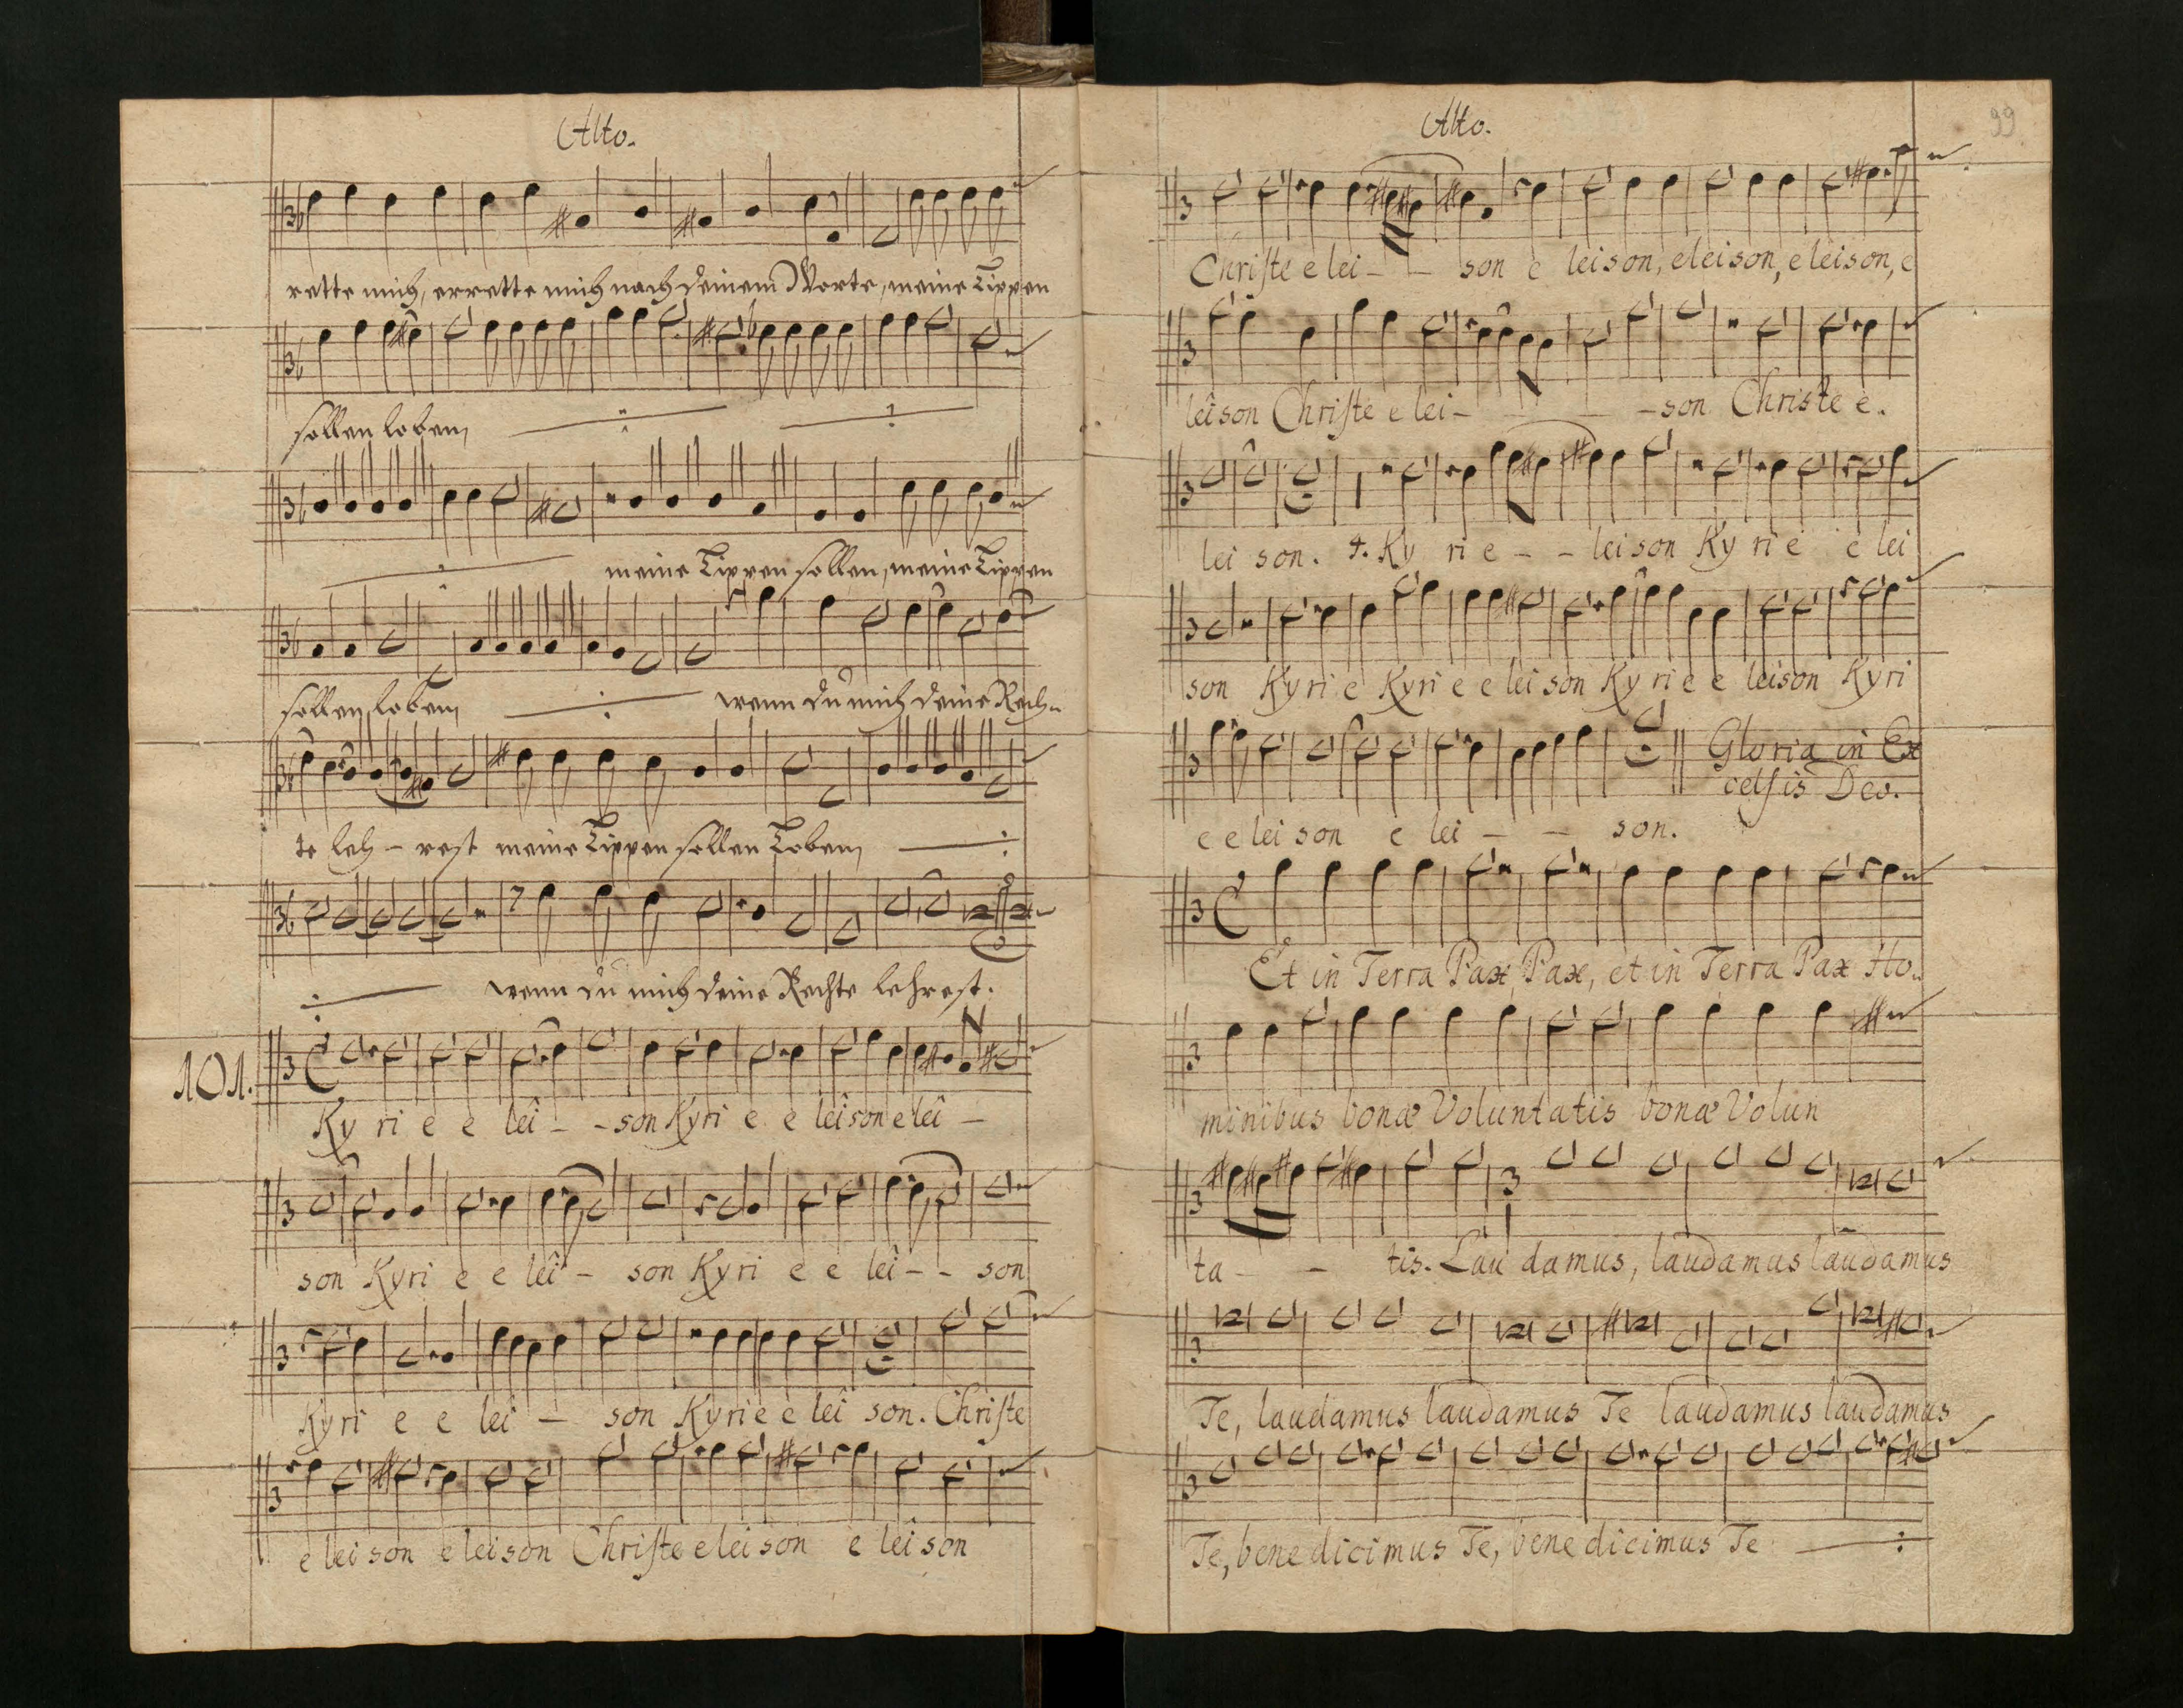 Alto.
rette mich, errette mich nach deinem Worte, meine Lippen
sollen loben,
meine Lippen sollen, meine Lippen
sollen loben, wenn du mich deine Rech-
te leh - rest meine Lippen sollen Loben,
wenn du mich deine Rechte lehrest.
101.
Ky ri e e lei - - son Kyri e e leison e lei -
son Kyri e e lei - son Kyri e e lei - - son
Kyri e e lei - son Kyrie e lei son. Christe
e lei son e leison Christe e lei son e lei son
Alto.
99
Christe e lei - - son e leison, eleison, e leison, e
leison Christe e lei - - son Christe e.
lei son. Ky ri e - - leison Ky ri e e lei
son Kyri e Kyri e e lei son Ky ri e e leison Kyri
Gloria in Ex
celsis Deo.
e e lei son e lei - - son.
Et in Terra Pax, Pax, et in Terra Pax Ho-
minibus bonæ Voluntatis bonæ Volun
ta - - tis. Lau damus, laudamus laudamus
Te, laudamus laudamus Te laudamus laudamus
Te, bene dicimus Te, bene dicimus Te